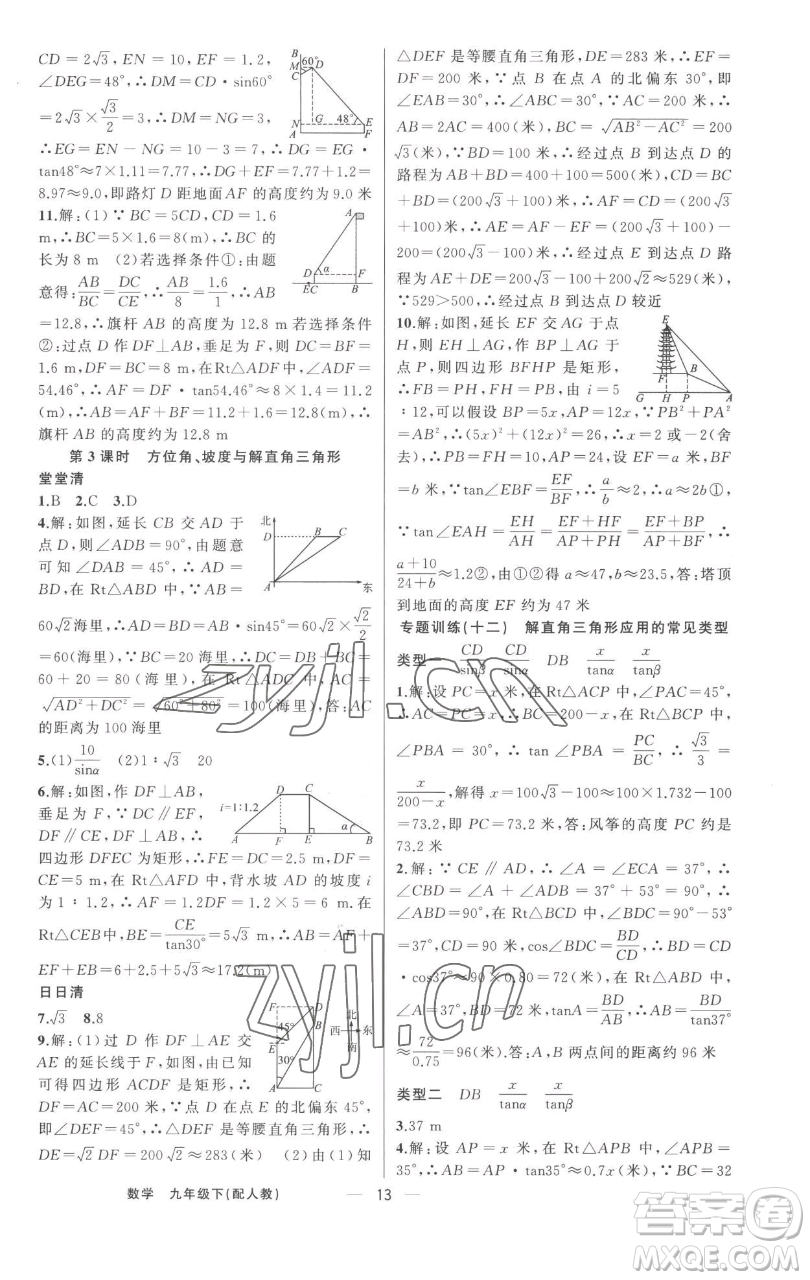 CD=2√3，EN=10，EF=1.2，
∠DEG=48°，∴DM=CD·sin60°
=2√3×√3/2=3，∴DM=NG=3，
∴EG=EN－NG=10－3=7，∴DG=EG·
tan48°≈7×1.11=7.77，∴DG+EF=7.77+1.2=
8.97≈9.0，即路灯D距地面AF的高度约为9.0米
11.解：(1)∵BC=5CD，CD=1.6
m，∴BC=5×1.6=8(m)，∴BC的
长为8 m (2)若选择条件①：由题
意得：AB/BC=DC/CE，∴AB/8=1.6/1，∴AB
=12.8，∴旗杆AB的高度为12.8 m若选择条件
②：过点D作DF⊥AB，垂足为F，则DC=BF=
1.6 m，DF=BC=8 m，在Rt△ADF中，∠ADF=
54.46°，∴AF=DF·tan54.46°≈8×1.4=11.2
(m)，∴AB=AF+BF=11.2+1.6=12.8(m)，∴
旗杆AB的高度约为12.8 m
第3课时 方位角、坡度与解直角三角形
堂堂清
1.B 2.C 3.D
4.解：如图，延长CB交AD于
点D，则∠ADB=90°，由题意
可知∠DAB=45°，∴AD=
BD，在Rt△ABD中，∵AB=
60√2海里，∴AD=BD=AB·sin45°=60√2×√2/2
=60(海里)，∵BC=20海里，∴DC=60+20=
80(海里)，在Rt△ADC中，由勾股定理得，AC=
√AD²+DC²=√60²+80²=100(海里)，答：AC
的距离为100海里
5.(1)10/sinα (2)1∶√3 20
6.解：如图，作DF⊥AB，
垂足为F，∵DC∥EF，
DF∥CE，DF⊥AB，∴
四边形DFEC为矩形，∴FE=DC=2.5 m，DF=
CE=5 m，在Rt△AFD中，背水坡AD的坡度i
为1∶1.2，∴AF=1.2DF=1.2×5=6 m.在
Rt△CEB中，BE=CE/tan30°=5√3 m，∴AB=AF+
EF+EB=6+2.5+5√3≈17.2(m)
日日清
7.√3 8.8
9.解：(1)过D作DF⊥AE交
AE的延长线于F，由已知
可得四边形ACDF是矩形，∴
DF=AC=200米，∵点D在点E的北偏东45°，
即∠DEF=45°，∴△DEF是等腰直角三角形，∴
DE=√2DF=200√2≈283(米) (2)由(1)知
△DEF是等腰直角三角形，DE=283米，∴EF=
DF=200米，∵点B在点A的北偏东30°，即
∠EAB=30°，∴∠ABC=30°，∵AC=200米，∴
AB=2AC=400(米)，BC=√AB²－AC²=200
√3(米)，∵BD=100米，∴经过点B到达点D的
路程为AB+BD=400+100=500(米)，CD=BC
+BD=(200√3+100)米，∴AF=CD=(200√3
+100)米，∴AE=AF－EF=(200√3+100)－
200=(200√3－100)米，∴经过点E到达点D路
程为AE+DE=200√3－100+200√2≈529(米)，
∵529＞500，∴经过点B到达点D较近
10.解：如图，延长EF交AG于点
H，则EH⊥AG，作BP⊥AG于
点P，则四边形BFHP是矩形，
∴FB=PH，FH=PB，由i=5
∶12，可以假设BP=5x，AP=12x，∵PB²+PA²
=AB²，∴(5x)²+(12x)²=26²，∴x=2或－2(舍
去)，∴PB=FH=10，AP=24，设EF=a米，BF=
b米，∵tan∠EBF=EF/BF，∴a/b≈2，∴a≈2b①，
∵tan∠EAH=EH/AH=EF+HF/AP+PH=EF+BP/AP+BF，∴
a+10/24+b≈1.2②，由①②得，a≈47，b≈23.5，答：塔顶
到地面的高度EF约为47米
专题训练(十二) 解直角三角形应用的常见类型
类型一 CD/sinβ CD/sinα DB x/tanα x/tanβ
1.解：设PC=x米，在Rt△ACP中，∠PAC=45°，
∴AC=PC=x，∴BC=200－x，在Rt△PCB中，
∠PBA=30°，∴tan∠PBA=PC/BC，∴√3/3=
x/200－x，解得x=100√3－100≈100×1.732－100
=73.2，即PC=73.2米，答：风筝的高度PC约是
73.2米
2.解：∵CE∥AD，∴∠A=∠ECA=37°，∴
∠CBD=∠A+∠ADB=37°+53°=90°，∴
∠ABD=90°，在Rt△BCD中，∠BDC=90°－53°
=37°，CD=90米，cos∠BDC=BD/CD，∴BD=CD
·cos37°≈90×0.80=72(米)，在Rt△ABD中，
∠A=37°，BD=72米，tanA=BD/AB，∴AB=BD/tan37°
≈72/0.75=96(米).答：A，B两点间的距离约96米
类型二 DB x/tanα x/tanβ
3.37 m
4.解：设AP=x米，在Rt△APB中，∠APB=
35°，∴AB=AP·tan35°≈0.7x(米)，∵BC=32
数学 九年级下(配人教) — 13 —
zyjl.cn
zyjl.cn
答案圈
MXQE.COM